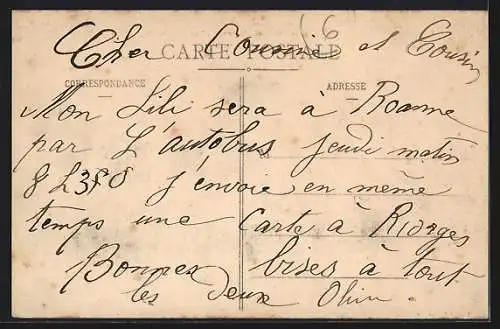 Cher Cousine et Cousin
CARTE POSTALE
CORRESPONDANCE
ADRESSE
Mon Lili sera à Roanne
par L'autobus jeudi matin
J'envoie en même
temps une Carte à Riorges
Bonnes bises à tout
les deux